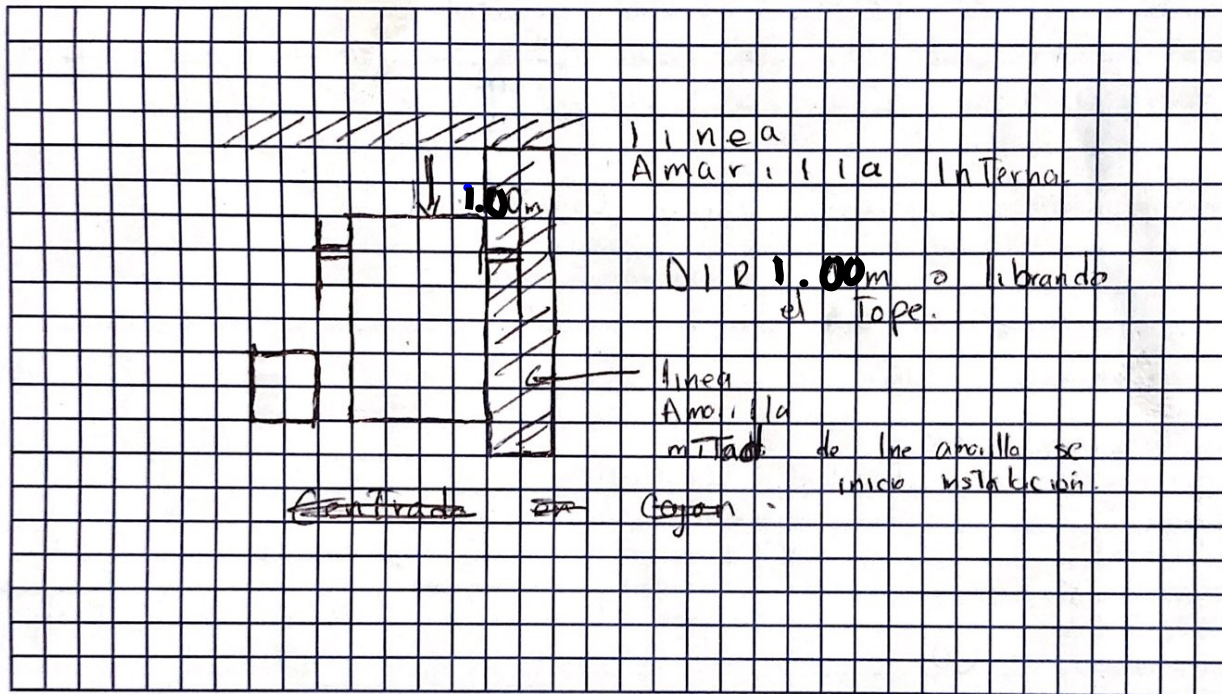 linea
Amarilla Interna.
1.00m
DIR 1.00m o librando
el Tope.
linea
Amarilla
mitad de lne amarillo se
inicio instalación.
Centrado en Cajon.